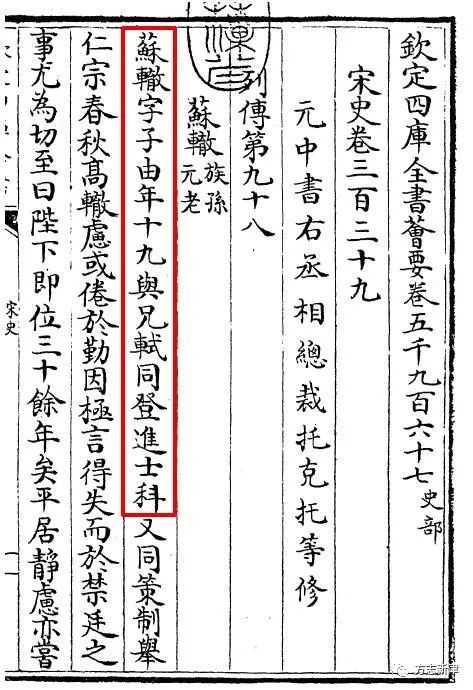 欽定四庫全書薈要卷五千九百六十七 史部
宋史卷三百三十九
元中書右丞相總裁托克托等修
列傳第九十八
蘇轍 族孫元老
蘇轍字子由年十九與兄軾同登進士科又同策制舉
仁宗春秋髙轍慮或倦於勤因極言得失而於禁廷之
事尤為切至曰陛下即位三十餘年矣平居靜慮亦嘗
宋史
方志新津